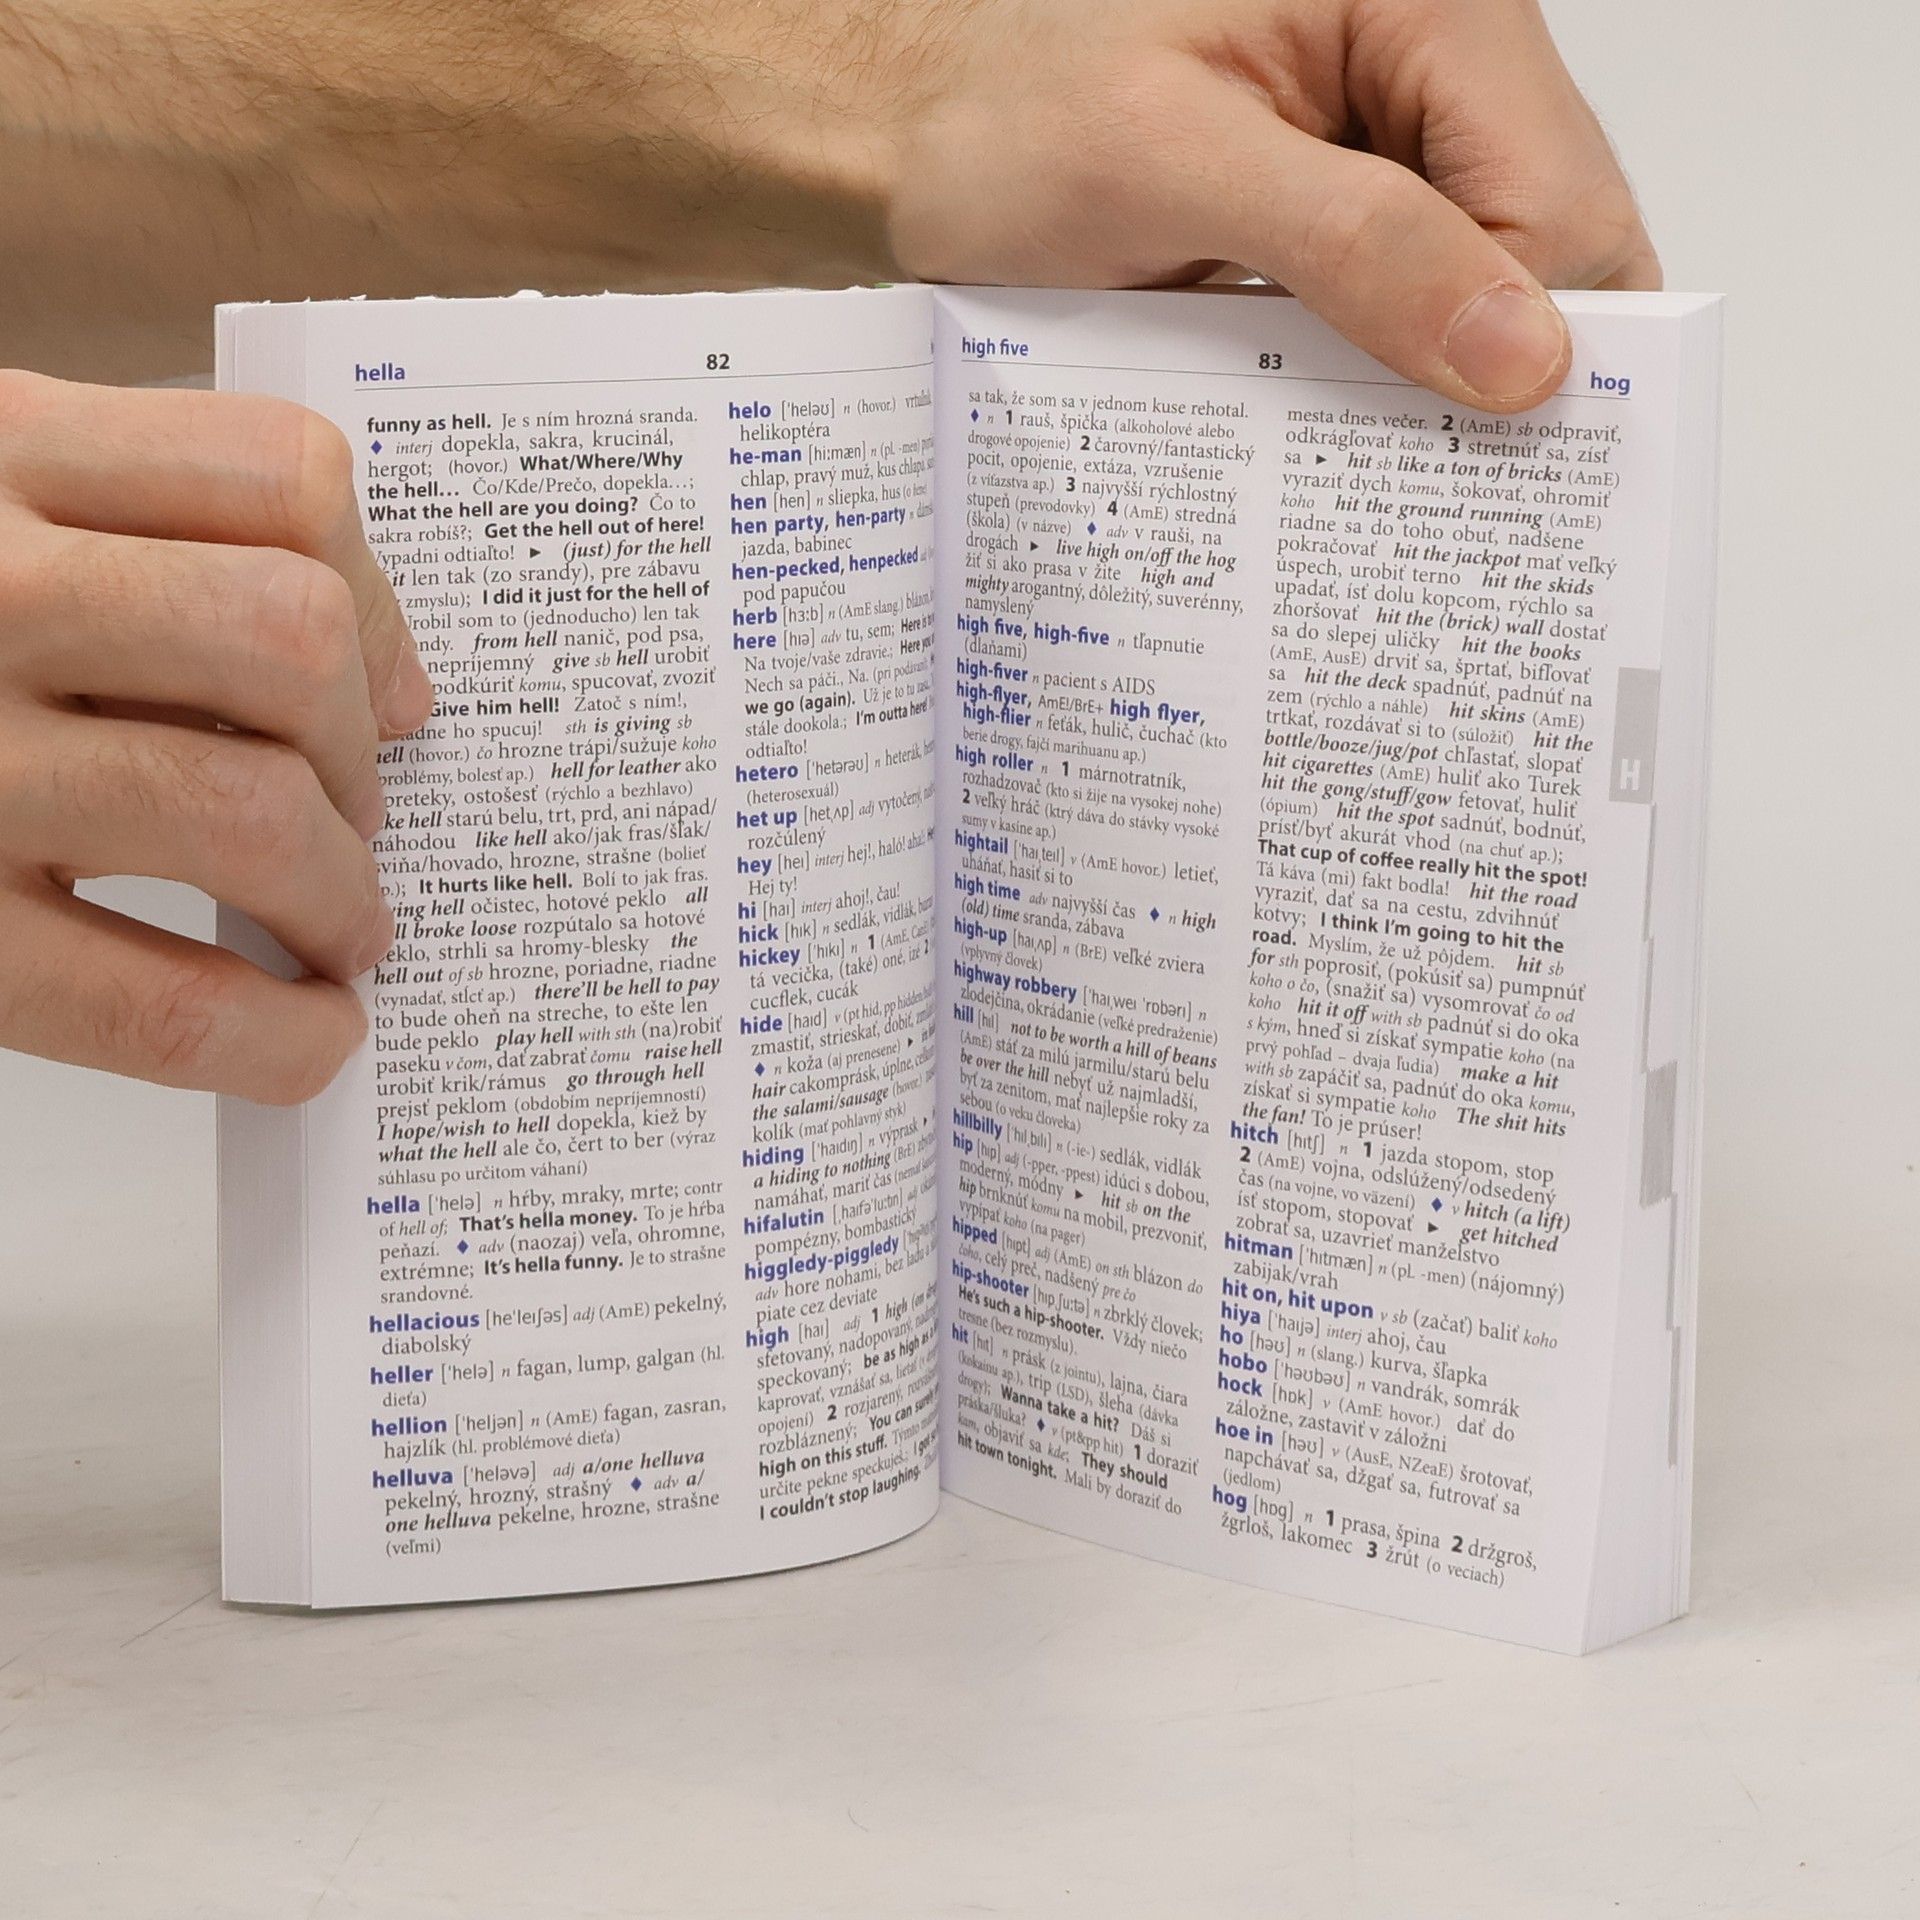 hella
82
funny as hell. Je s ním hrozná sranda.
♦ interj dopekla, sakra, krucinál,
hergot; (hovor.) What/Where/Why
the hell... Čo/Kde/Prečo, dopekla...;
What the hell are you doing? Čo to
sakra robíš?; Get the hell out of here!
Vypadni odtiaľto! ► (just) for the hell
it len tak (zo srandy), pre zábavu
zmyslu); I did it just for the hell of
Urobil som to (jednoducho) len tak
from hell nanič, pod psa,
nepríjemný give sb hell urobiť
podkúriť komu, spucovať, zvoziť
Give him hell! Zatoč s ním!,
ho spucuj! sth is giving sb
hell (hovor.) čo hrozne trápi/sužuje koho
problémy, bolesť ap.) hell for leather ako
preteky, ostošesť (rýchlo a bezhlavo)
like hell starú belu, trt, prd, ani nápad/
náhodou like hell ako/jak fras/šľak/
sviňa/hovado, hrozne, strašne (bolieť
ap.); It hurts like hell. Bolí to jak fras.
hell očistec, hotové peklo all
hell broke loose rozpútalo sa hotové
peklo, strhli sa hromy-blesky the
hell out of sb hrozne, poriadne, riadne
(vynadať, stĺcť ap.) there'll be hell to pay
to bude oheň na streche, to ešte len
bude peklo play hell with sth (na)robiť
paseku v čom, dať zabrať čomu raise hell
urobiť krik/rámus go through hell
prejsť peklom (obdobím nepríjemností)
I hope/wish to hell dopekla, kiež by
what the hell ale čo, čert to ber (výraz
súhlasu po určitom váhaní)
hella ['helə] n hŕby, mraky, mrte; contr
of hell of; That's hella money. To je hŕba
peňazí. ♦ adv (naozaj) veľa, ohromne,
extrémne; It's hella funny. Je to strašne
srandovné.
hellacious [he'leɪʃəs] adj (AmE) pekelný,
diabolský
heller ['helə] n fagan, lump, galgan (hl.
dieťa)
hellion ['heljən] n (AmE) fagan, zasran,
hajzlík (hl. problémové dieťa)
helluva ['heləvə] adj a/one helluva
pekelný, hrozný, strašný ♦ adv a/
one helluva pekelne, hrozne, strašne
(veľmi)
helo ['heləʊ] n (hovor.)
helikoptéra
he-man [hi:mæn] n (pl. -men)
chlap, pravý muž, kus chlapa,
hen [hen] n sliepka, hus
hen party, hen-party n
jazda, babinec
hen-pecked, henpecked
pod papučou
herb [hɜ:b] n (AmE slang.)
here [hɪə] adv tu, sem;
Na tvoje/vaše zdravie.; Here you
Nech sa páči., Na. (pri
we go (again). Už je to tu zas.
stále dookola.; I'm outta here!
odtiaľto!
hetero ['hetərəʊ] n heterák,
(heterosexuál)
het up [het,ʌp] adj vytočený,
rozčúlený
hey [heɪ] interj hej!, haló!
Hej ty!
hi [haɪ] interj ahoj!, čau!
hick [hɪk] n sedlák, vidlák,
hickey ['hɪkɪ] n 1 (AmE,
tá vecička, (také) oné, izé 2
cucflek, cucák
hide [haɪd] v (pt hid, pp hidden
zmastiť, strieskať, dobiť,
♦ n koža (aj prenesene) ►
hair cakomprásk, úplne,
the salami/sausage (hovor.)
kolík (mať pohlavný styk)
hiding ['haɪdɪŋ] n výprask ►
a hiding to nothing (BrE)
namáhať, mariť čas
hifalutin [,haɪfə'lu:tɪn] adj
pompézny, bombastický
higgledy-piggledy
adv hore nohami, bez ladu a
piate cez deviate
high [haɪ] adj 1 high
sfetovaný, nadopovaný,
speckovaný; be as high as a
kaprovať, vznášať sa, lietať
opojení) 2 rozjarený,
rozbláznený; You can surely
high on this stuff. Týmto
určite pekne speckuješ.; I got
I couldn't stop laughing.
high five
83
hog
sa tak, že som sa v jednom kuse rehotal.
♦ n 1 rauš, špička (alkoholové alebo
drogové opojenie) 2 čarovný/fantastický
pocit, opojenie, extáza, vzrušenie
(z víťazstva ap.) 3 najvyšší rýchlostný
stupeň (prevodovky) 4 (AmE) stredná
(škola) (v názve) ♦ adv v rauši, na
drogách ► live high on/off the hog
žiť si ako prasa v žite high and
mighty arogantný, dôležitý, suverénny,
namyslený
high five, high-five n tľapnutie
(dlaňami)
high-fiver n pacient s AIDS
high-flyer, AmE!/BrE+ high flyer,
high-flier n feťák, hulič, čuchač (kto
berie drogy, fajčí marihuanu ap.)
high roller n 1 márnotratník,
rozhadzovač (kto si žije na vysokej nohe)
2 veľký hráč (ktrý dáva do stávky vysoké
sumy v kasíne ap.)
hightail ['haɪ,teɪl] v (AmE hovor.) letieť,
uháňať, hasiť si to
high time adv najvyšší čas ♦ n high
(old) time sranda, zábava
high-up [haɪ,ʌp] n (BrE) veľké zviera
(vplyvný človek)
highway robbery ['haɪ,weɪ 'rɒbərɪ] n
zlodejčina, okrádanie (veľké predraženie)
hill [hɪl] not to be worth a hill of beans
(AmE) stáť za milú jarmilu/starú belu
be over the hill nebyť už najmladší,
byť za zenitom, mať najlepšie roky za
sebou (o veku človeka)
hillbilly ['hɪl,bɪlɪ] n (-ie-) sedlák, vidlák
hip [hɪp] adj (-pper, -ppest) idúci s dobou,
moderný, módny ► hit sb on the
hip brnknúť komu na mobil, prezvoniť,
vypípať koho (na pager)
hipped [hɪpt] adj (AmE) on sth blázon do
čoho, celý preč, nadšený pre čo
hip-shooter [hɪp,ʃu:tə] n zbrklý človek;
He's such a hip-shooter. Vždy niečo
tresne (bez rozmyslu).
hit [hɪt] n prásk (z jointu), lajna, čiara
(kokaínu ap.), trip (LSD), šleha (dávka
drogy); Wanna take a hit? Dáš si
práska/šluka? ♦ v (pt&pp hit) 1 doraziť
kam, objaviť sa kde; They should
hit town tonight. Mali by doraziť do
mesta dnes večer. 2 (AmE) sb odpraviť,
odkrágľovať koho 3 stretnúť sa, zísť
sa ► hit sb like a ton of bricks (AmE)
vyraziť dych komu, šokovať, ohromiť
koho hit the ground running (AmE)
riadne sa do toho obuť, nadšene
pokračovať hit the jackpot mať veľký
úspech, urobiť terno hit the skids
upadať, ísť dolu kopcom, rýchlo sa
zhoršovať hit the (brick) wall dostať
sa do slepej uličky hit the books
(AmE, AusE) drviť sa, šprtať, bifľovať
sa hit the deck spadnúť, padnúť na
zem (rýchlo a náhle) hit skins (AmE)
trtkať, rozdávať si to (súložiť) hit the
bottle/booze/jug/pot chľastať, slopať
hit cigarettes (AmE) huliť ako Turek
hit the gong/stuff/gow fetovať, huliť
(ópium) hit the spot sadnúť, bodnúť,
prísť/byť akurát vhod (na chuť ap.);
That cup of coffee really hit the spot!
Tá káva (mi) fakt bodla! hit the road
vyraziť, dať sa na cestu, zdvihnúť
kotvy; I think I'm going to hit the
road. Myslím, že už pôjdem. hit sb
for sth poprosiť, (pokúsiť sa) pumpnúť
koho o čo, (snažiť sa) vysomrovať čo od
koho hit it off with sb padnúť si do oka
s kým, hneď si získať sympatie koho (na
prvý pohľad – dvaja ľudia) make a hit
with sb zapáčiť sa, padnúť do oka komu,
získať si sympatie koho The shit hits
the fan! To je prúser!
hitch [hɪtʃ] n 1 jazda stopom, stop
2 (AmE) vojna, odslúžený/odsedený
čas (na vojne, vo väzení) ♦ v hitch (a lift)
ísť stopom, stopovať ► get hitched
zobrať sa, uzavrieť manželstvo
hitman ['hɪtmæn] n (pl. -men) (nájomný)
zabijak/vrah
hit on, hit upon v sb (začať) baliť koho
hiya ['haɪjə] interj ahoj, čau
ho [həʊ] n (slang.) kurva, šľapka
hobo ['həʊbəʊ] n vandrák, somrák
hock [hɒk] v (AmE hovor.) dať do
záložne, zastaviť v záložni
hoe in [həʊ] v (AusE, NZeaE) šrotovať,
napchávať sa, džgať sa, futrovať sa
(jedlom)
hog [hɒg] n 1 prasa, špina 2 držgroš,
žgrloš, lakomec 3 žrút (o veciach)
H